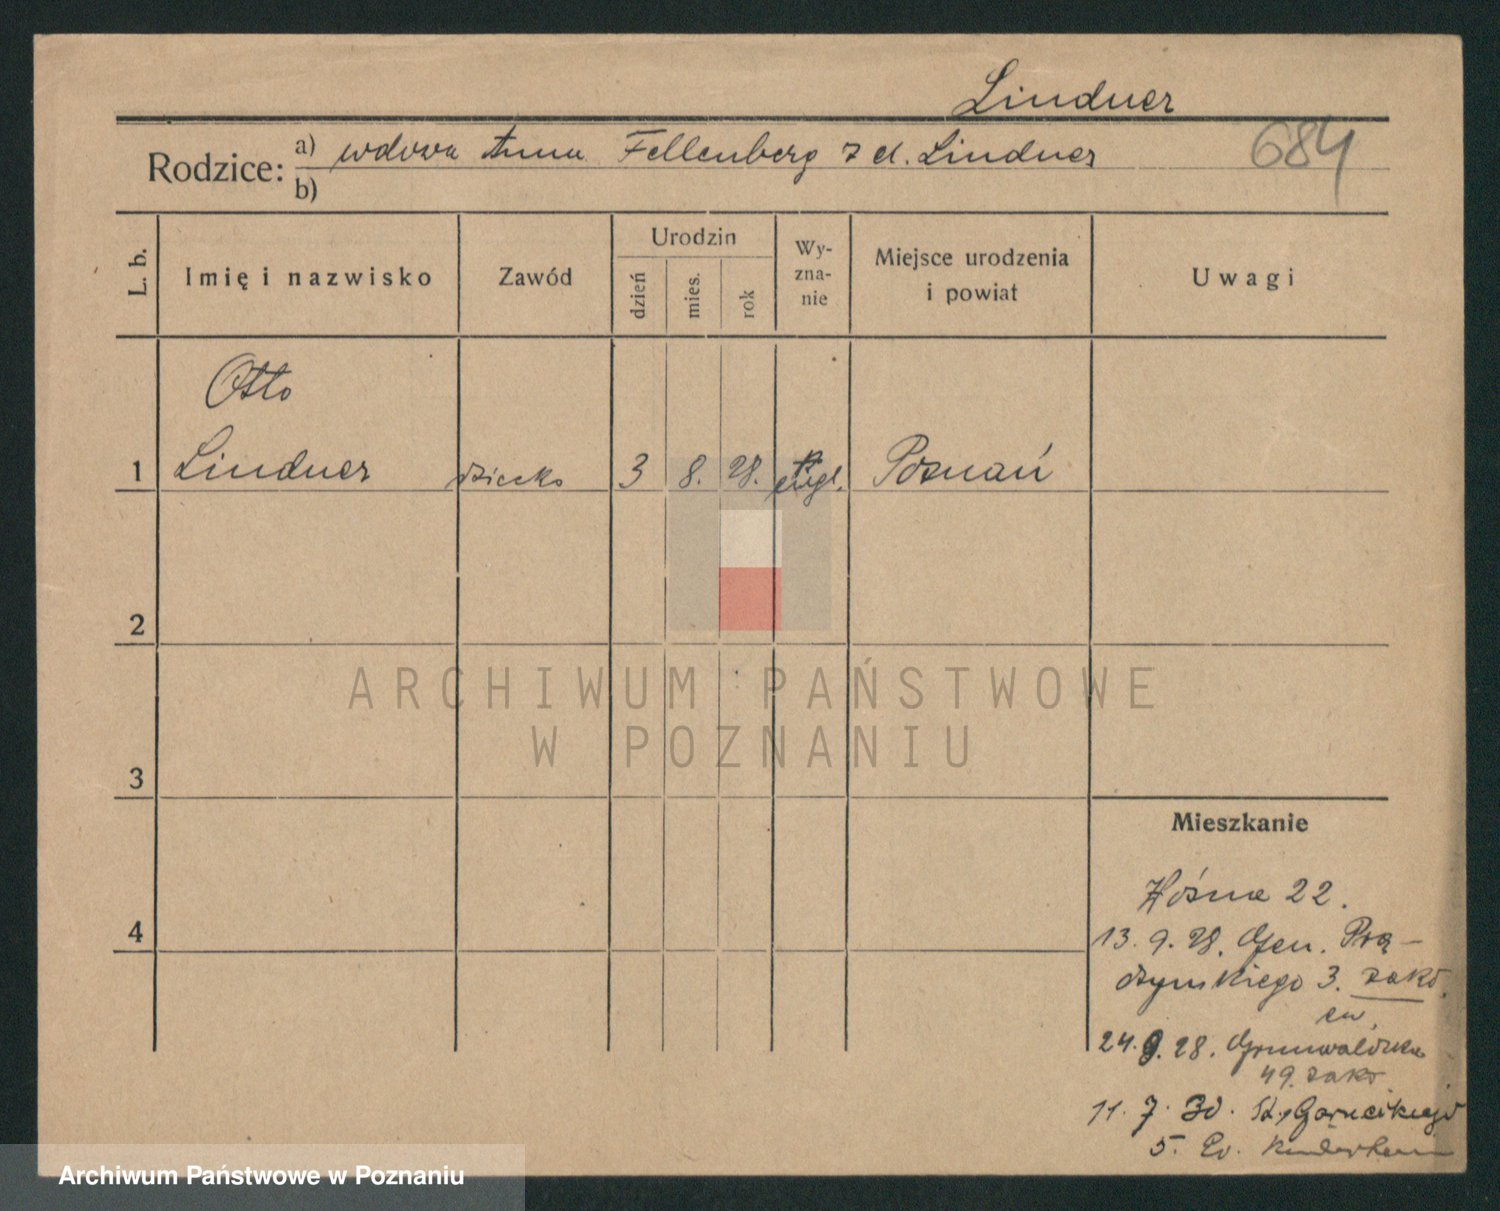 Lindner
Rodzice: a) wdowa Anna Fellenberg z d. Lindner 684
b)
L. b. Imię i nazwisko Zawód Urodzin dzień mies. rok Wy-zna-nie Miejsce urodzenia i powiat Uwagi
Otto
1 Lindner dziecko 3 8. 28. Poznań
2
ARCHIWUM PAŃSTWOWE
W POZNANIU
3
Mieszkanie
22.
4
13. 9. 28. Gen. Prą-
dzyńskiego 3. zakł.
ew.
24. 9. 28. Grunwaldzka
49. zakł.
11. 7. 30.
5. Ev. Kinderheim
Archiwum Państwowe w Poznaniu